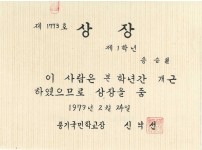 제 1993 호
상 장
제 1 학년
이 사람은 본 학년간 개근
하였으므로 상장을 줌
1979 년 2 월 24 일
풍기국민학교장 신